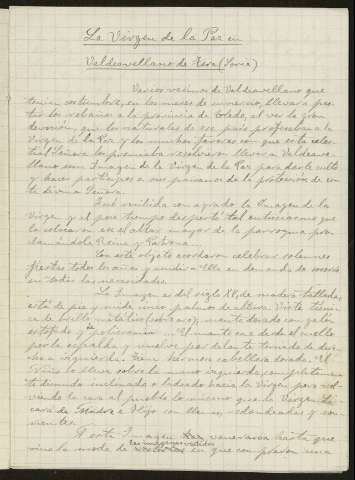 La Virgen de la Paz en
Valdeavellano de Tera (Soria)
Varios vecinos de Valdeavellano que
tenían costumbre, en los meses de invierno, llevar a pas-
tar los rebaños a la provincia de Toledo, al ver la gran
devoción, que los naturales de ese país profesaban a la
Virgen de la Paz y los muchos favores con que esta celes-
tial Señora los premiaba resolvieron llevar a Valdeave-
llano una Imagen de la Virgen de la Paz para darle culto
y hacer partícipes a sus paisanos de la protección de es-
ta divina Señora.
Fué recibida con agrado la Imagen de la
Virgen y al poco tiempo despertó tal entusiasmo que
la colocaron en el altar mayor de la parroquia pro-
clamándola Reina y Patrona.
Con este objeto acordaron celebrar solemnes
fiestas todos los años y acudir a Ella en demanda de socorro
en todas las necesidades.
La Imagen es del siglo XV, de madera tallada,
está de pie y mide cinco palmos de altura. Viste túnica
de brillo metálico manto dorado con
estofado y de policromía. El manto cae desde el cuello
por la espalda y vuelve por delante terciado de dere-
cha a izquierda. Tiene hermosa cabellera dorada. El
Niño lo lleva sobre la mano izquierda, completamen-
te desnudo inclinado o ladeado hacia la Virgen pero vol-
viendo la cara al pueblo lo mismo que la Virgen. La
cara de Madre e Hijo son llenas, redondeadas y son-
rientes.
A esta Imagen veneraron hasta que
las imágenes vestidas
vino la moda de en que compraron una